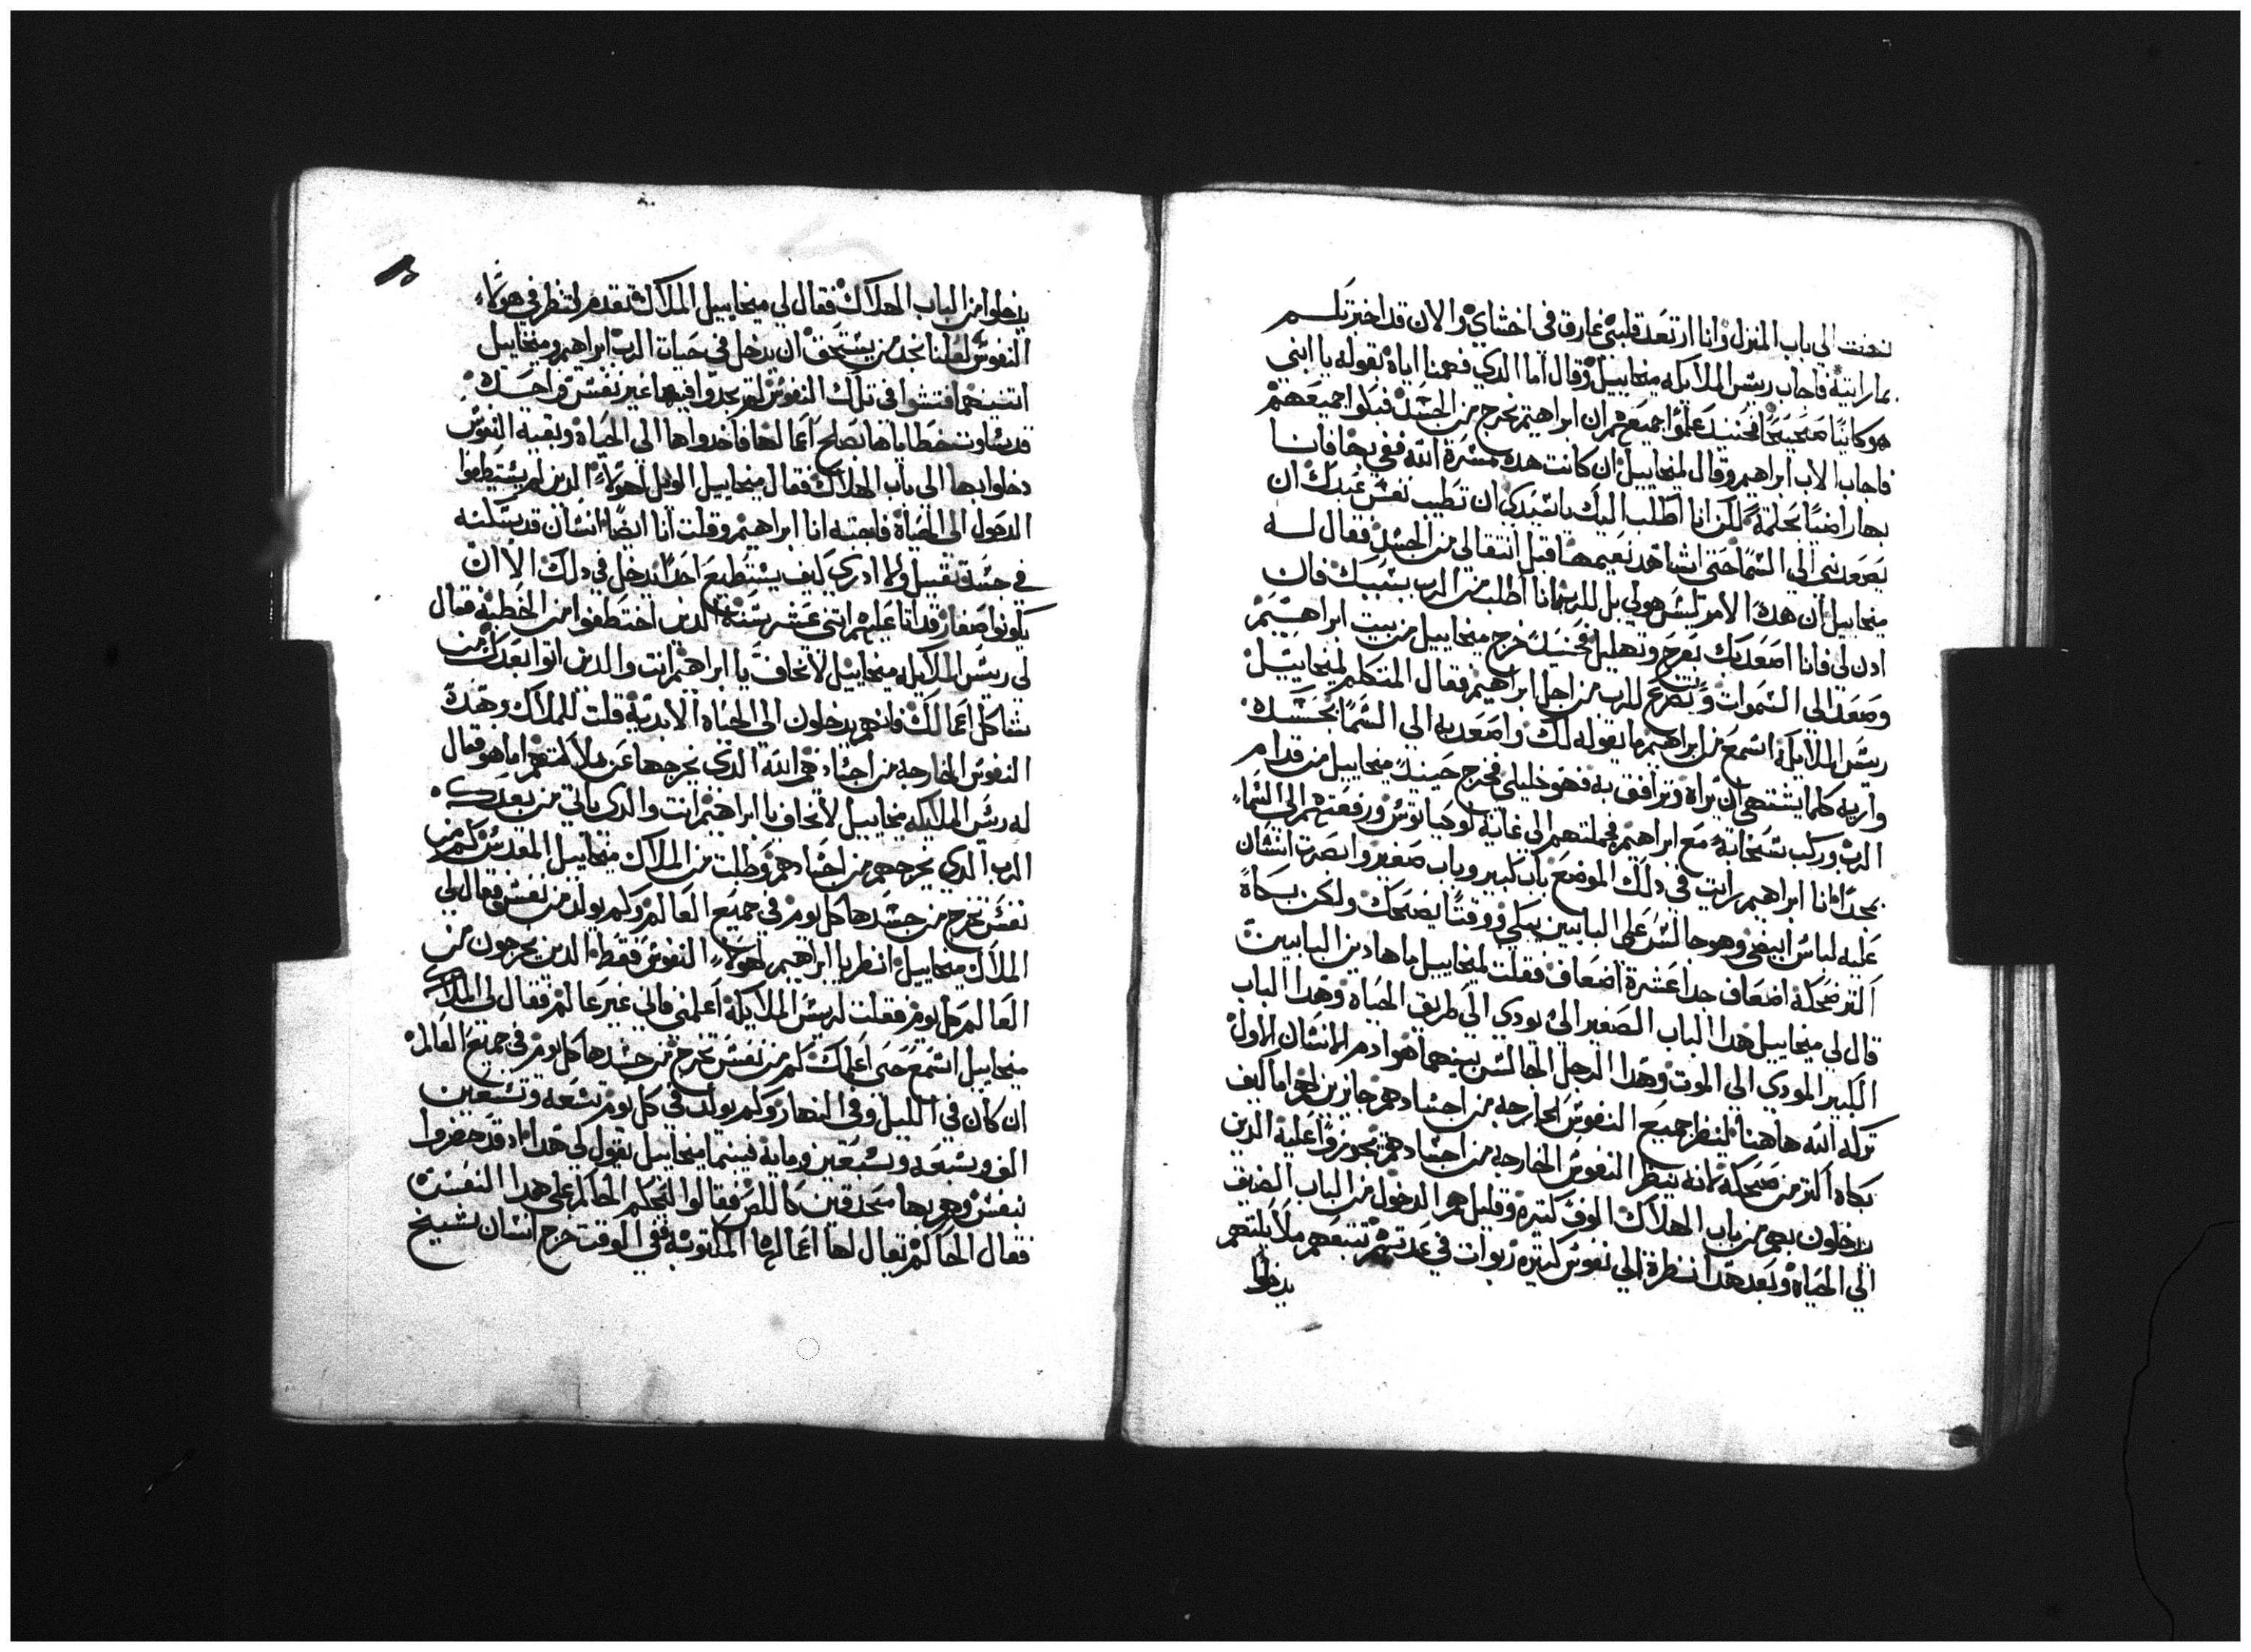 نحت الي باب المنزل وانا ارتعد قلبي غارق في احشاي والان قد اخبرتكم
بما رايته فاجاب ريس الملايكه ميخاييل وقال اما الدي فهمنا اياه بقوله يا ابني
هو كاينا صحيحا فحينيد علموا جميعهم ان ابراهيم يخرج من الجسد فبكوا جميعهم
فاجاب الاب ابراهيم وقال لميخاييل ان كانت هده مسرة الله ففي بخا فانا
بها راضيا بحلمة لكن انا اطلب اليك يا سيدي ان تطيب نفس عبدك ان
يصعدني الي السما حتي اشاهد نعيمها قبل انتقالي من الجسد فقال له
ميخاييل ان هدا الامر ليس هو لي بل للرب انا اطلب من الرب بسببك فان
ادن لي فانا اصعد بك بفرح وتهليل فحينيد خرج ميخاييل من بيت ابراهيم
وصعد الي السموات وتضرع للرب من اجل ابراهيم فقال المتكلم لميخاييل
ريس الملايكة اسمع من ابراهيم ما يقوله لك واصعد به الي السما بجسده
واريه كلما يشتهي ان يراه وترافق به فهو خليلي فخرج حينيد ميخاييل من قدام
الرب وركب سحابة مع ابراهيم فحملتهم الي غاية لوحيانوس ورفعتهم الي السماء
بمجد انا ابراهيم رايت في دلك الموضع باب كبير وباب صغير وابصرت انسان
عليه لباس ابيض وهو جالس علي البابين يبكي ووقتا يضحك ولكن بكاه
اكتر ضحكة اضعاف جدا عشرة اضعاف فقلت لميخاييل ما هادين البابين
قال لي ميخاييل هدا الباب الصغير الي يودي الي طريق الحياه وهدا الباب
الكبير المودي الي الموت وهدا الرجل الجالس بينهما هو ادم الانسان الاول
تركه الله هاهنا لينظر جميع النفوس الخارجه من اجسادهم جازين اما كيف
بكاه اكتر من ضحكه لانه ينظر النفوس الخارجه من اجسادهم يجوزوا عليه الدين
يدخلون بهم من باب الهلاك الوف كتيرة وقليل هو الدخول من الباب الضيق
الي الحياة وبعد هدا نظرة الي نفوس كتيره ربوات في عدتهم تتبعهم ملايكتهم
يدخلوا
يدخلوا من الباب الهلاك فقال لي ميخاييل الملاك تقدم لننظر في هولاء
النفوس لعلنا نجد من يستحق ان يدخل في حيات الرب ابراهيم وميخاييل
اتنينهما فتشوا في تلك النفوس لم يجدوا فيها غير نفس واحده
قد تساوت خطاياها بصالح اعمالها فاخدواها الي الحياه وبقية النفوس
دخلوا بها الي باب الهلاك فقال ميخاييل الويل لهولاء الدين لم يستطيعوا
الدخول الي الحياة فاجبته انا ابراهيم وقلت انا ايضا انسان قد سكنت
في جسد تقيل ولا ادري كيف يستطيع احدا ان يدخل في دلك الا ان
يكونوا صغار قد انا عليهم اتني عشر سنة الدين اختطفوا من الخطيه فقال
لي ريس الملايكه ميخاييل لا تخاف يا ابراهيم انت والدين اتوا بعدك من
شاكل اعمالك فانهم يدخلون الي الحياه الابدية قلت للملاك وهده
النفوس الخارجه من اجسادهم الله الدي يخرجها عن ملايكتهم اما هو قال
له ريس الملايكه ميخاييل لا تخاف يا ابراهيم انت والدي ياتي من بعدك
الرب الدي يخرجهم من اجسادهم وطلبت من الملاك ميخاييل المقدس كم من
نفس تخرج من جسدها كل يوم في جميع العالم وكم يولد من نفس فقال لي
الملاك ميخاييل انظر يا ابراهيم لهولاء النفوس فقط الدين يخرجون من
العالم كل يوم فقلت لريس الملايكة اعلمني فاني غير عالم فقال لي الملاك
ميخاييل اسمع حتي اعلمك كم من نفس تخرج من جسدها كل يوم في جميع العالم
ان كان في الليل وفي النهار وكم يولد في كل يوم تسعه وتسعين
الف وتسعه وتسعين وماية فبينما ميخاييل يقول لي هدا اد قد حضروا
بنفس وهم بها محدقين كاللص فقالوا لتحكم الحاكم علي هدا النفس
فقال الحاكم تعال لها اعمالها المكتوبه ففي الوقت خرج انسان شيخ